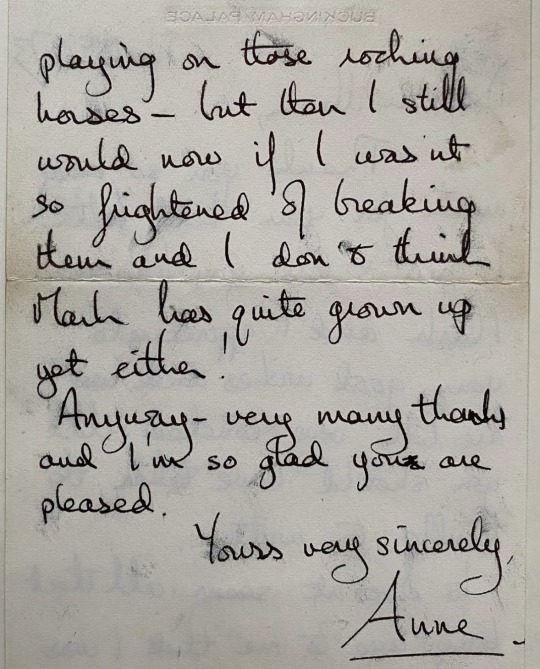 BUCKINGHAM PALACE
playing on those rocking
horses – but then I still
would now if I was'nt
so frightened of breaking
them and I don't think
Mark has quite grown up
yet either!
Anyway – very many thanks
and I'm so glad you are
pleased.
Yours very sincerely,
Anne